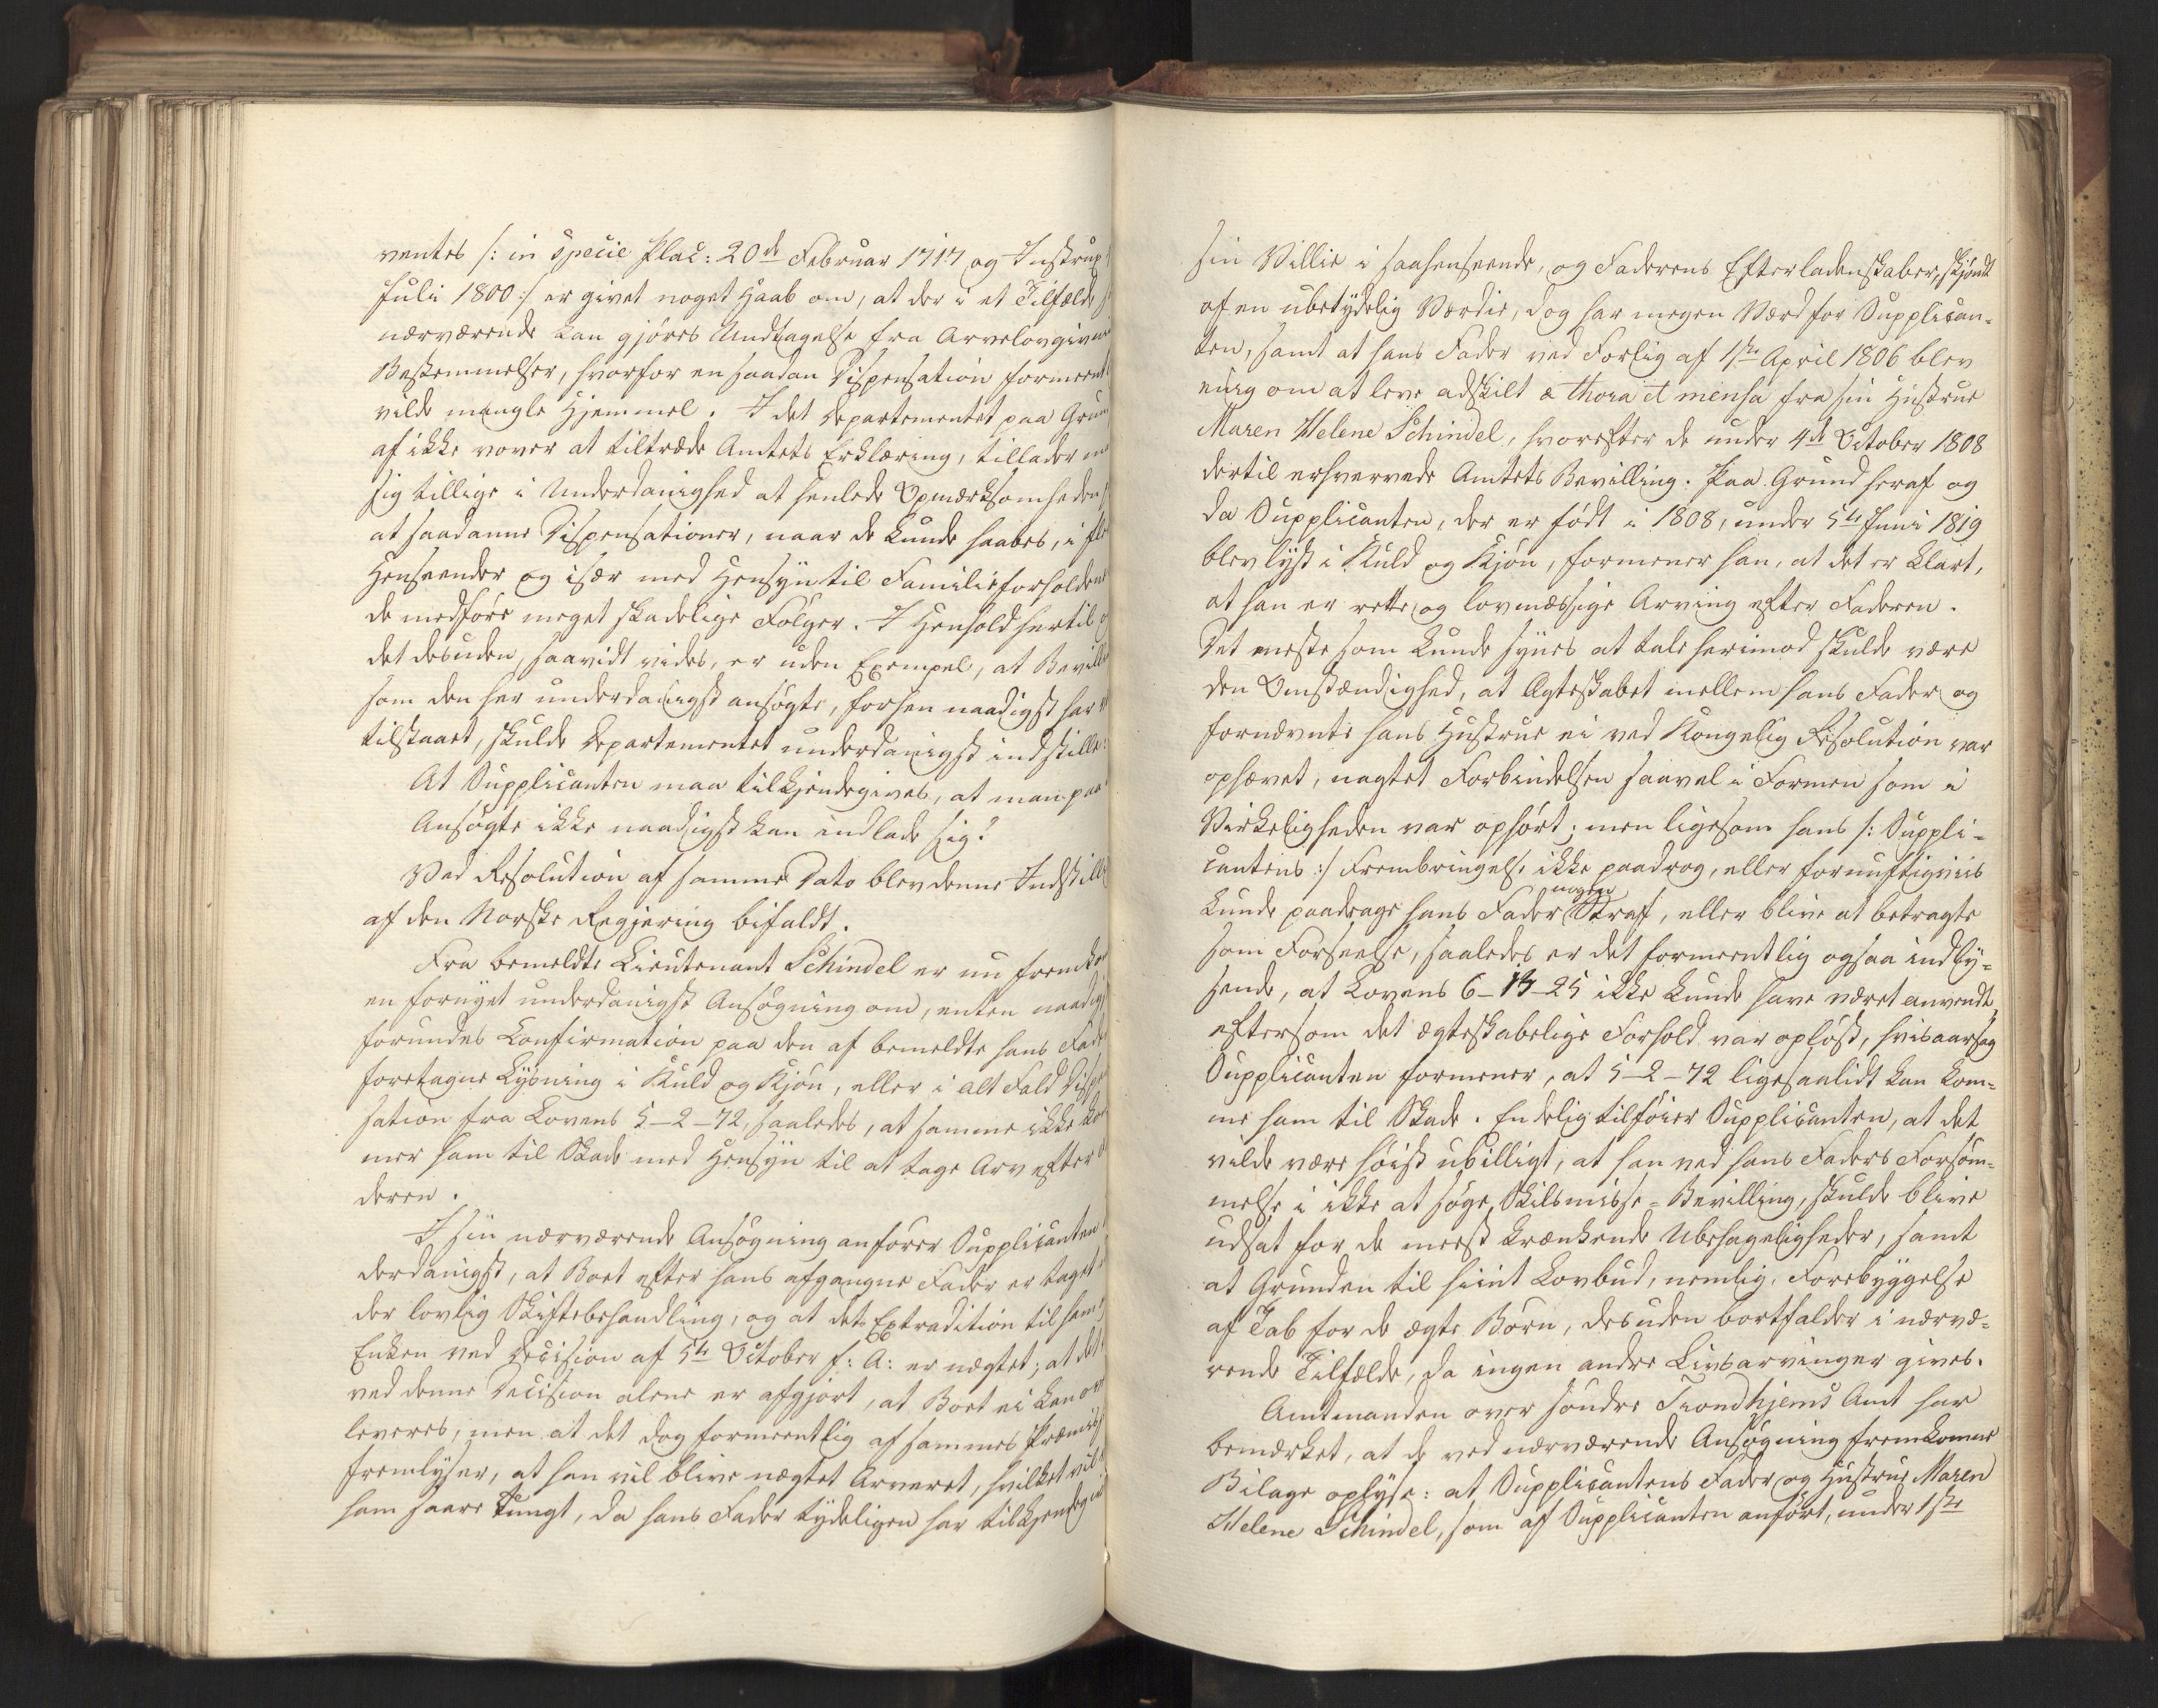 ventes /: in specie Plac: 20de Februar 1717 og Instrux
Juli 1800 :/ er givet noget Haab om, at der i et Tilfælde,
nærværende kan gjøres Undtagelse fra Arvelovgivn
Bestemmelser, hvorfor en saadan Dispensation formeent
vilde mangle Hjemmel. I det Departementet paa Grun
af ikke vover at tiltræde Amtets Erklæring, tillader m
sig tillige i Underdanighed at henlede Opmærksomheden
at saadanne Dispensationer, naar de kunde haabes, i fle
Henseender og især med Hensyn til Familieforholdene
de medføre meget skadelige Følger. I Henhold hertil
det desuden, saavidt vides, er uden Exempel, at Bevilli
som den her underdanigst ansøgte, forhen naadigst har
tilstaaet, skulde Departementet underdanigst indstille:
At Supplicanten maa tilkjendegives, at man paa
Ansøgte ikke naadigst kan indlade sig?
Ved Resolution af samme Dato blev denne Indstilli
af den Norske Regjering bifaldt.
Fra bemeldte Lieutenant Schindel er nu fremko
en fornyet underdanigst Ansøgning om, enten naadigst
forundes Confirmation paa den af bemeldte hans Fade
foretagne Lysning i Kuld og Kjøn, eller i alt Fald Dispe
sation fra Lovens 5-2-72, saaledes, at samme ikke ko
mer ham til Skade med Hensyn til at tage Arv efter
deren.
I sin nærværende Ansøgning anfører Supplicanten
derdanigst, at Boet efter hans afgangne Fader er taget
der lovlig Skiftebehandling, og at dets Extradition til ham
Enken ved Decision af 5te October f: A: er nægtet; at det
ved denne Decision alene er afgjort, at Boet ei kan
leveres, men at det dog formeentlig af sammes Præmiss
fremlyser, at han vil blive nægtet Arveret, hvilket vil
ham saare tungt, da hans Fader tydeligen har tilkjendegi
sin Villie i saahenseende, og Faderens Efterladenskaber, skjøndt
af en ubetydelig Værdie, dog har megen Værd for Supplican-
ten, samt at hans Fader ved Forlig af 1ste April 1806 blev
enig om at leve adskilt a thora et mensa fra sin Hustrue
Maren Helene Schindel, hvorefter de under 4de October 1808
dertil erhvervede Amtets Bevilling. Paa Grund heraf og
da Supplicanten, der er født i 1808, under 5te Juni 1819
blev lyst i Kuld og Kjøn, formener han, at det er klart,
at han er rette og lovmæssige Arving efter Faderen.
Det meste som kunde synes at tale herimod skulde være
den Omstændighed, at Ægteskabet mellem hans Fader og
fornævnte hans Hustrue ei ved Kongelig Resolution var
ophævet, uagtet Forbindelsen saavel i Formen som i
Virkeligheden var ophørt; men ligesom hans /: Suppli-
cantens :/ Frembringelse ikke paadrog, eller fornuftigviis
kunde paadrage hans Fader nogen Straf, eller blive at betragte
som Forseelse, saaledes er det formeentlig ogsaa indly-
sende, at Lovens 6-13-25 ikke kunde have været anvendt,
eftersom det ægteskabelige Forhold var opløst, hvisaarsag
Supplicanten formener, at 5-2-72 ligesaalidt kan kom-
me ham til Skade. Endelig tilføier Supplicanten, at det
vilde være høist ubilligt, at han ved hans Faders Forsøm-
melse i ikke at søge Skilsmisse-Bevilling, skulde blive
udsat for de meest krænkende Ubehageligheder, samt
at Grunden til hiint Lovbud, nemlig, Forebyggelse
af Tab for de ægte Børn, desuden bortfalder i nærvæ-
rende Tilfælde, da ingen andre Livsarvinger gives.
Amtmanden over søndre Trondhjems Amt har
bemærket, at de ved nærværende Ansøgning fremkomne
Bilage oplyse: at Supplicantens Fader og Hustrue Maren
Helene Schindel, som af Supplicanten anført, under 1ste